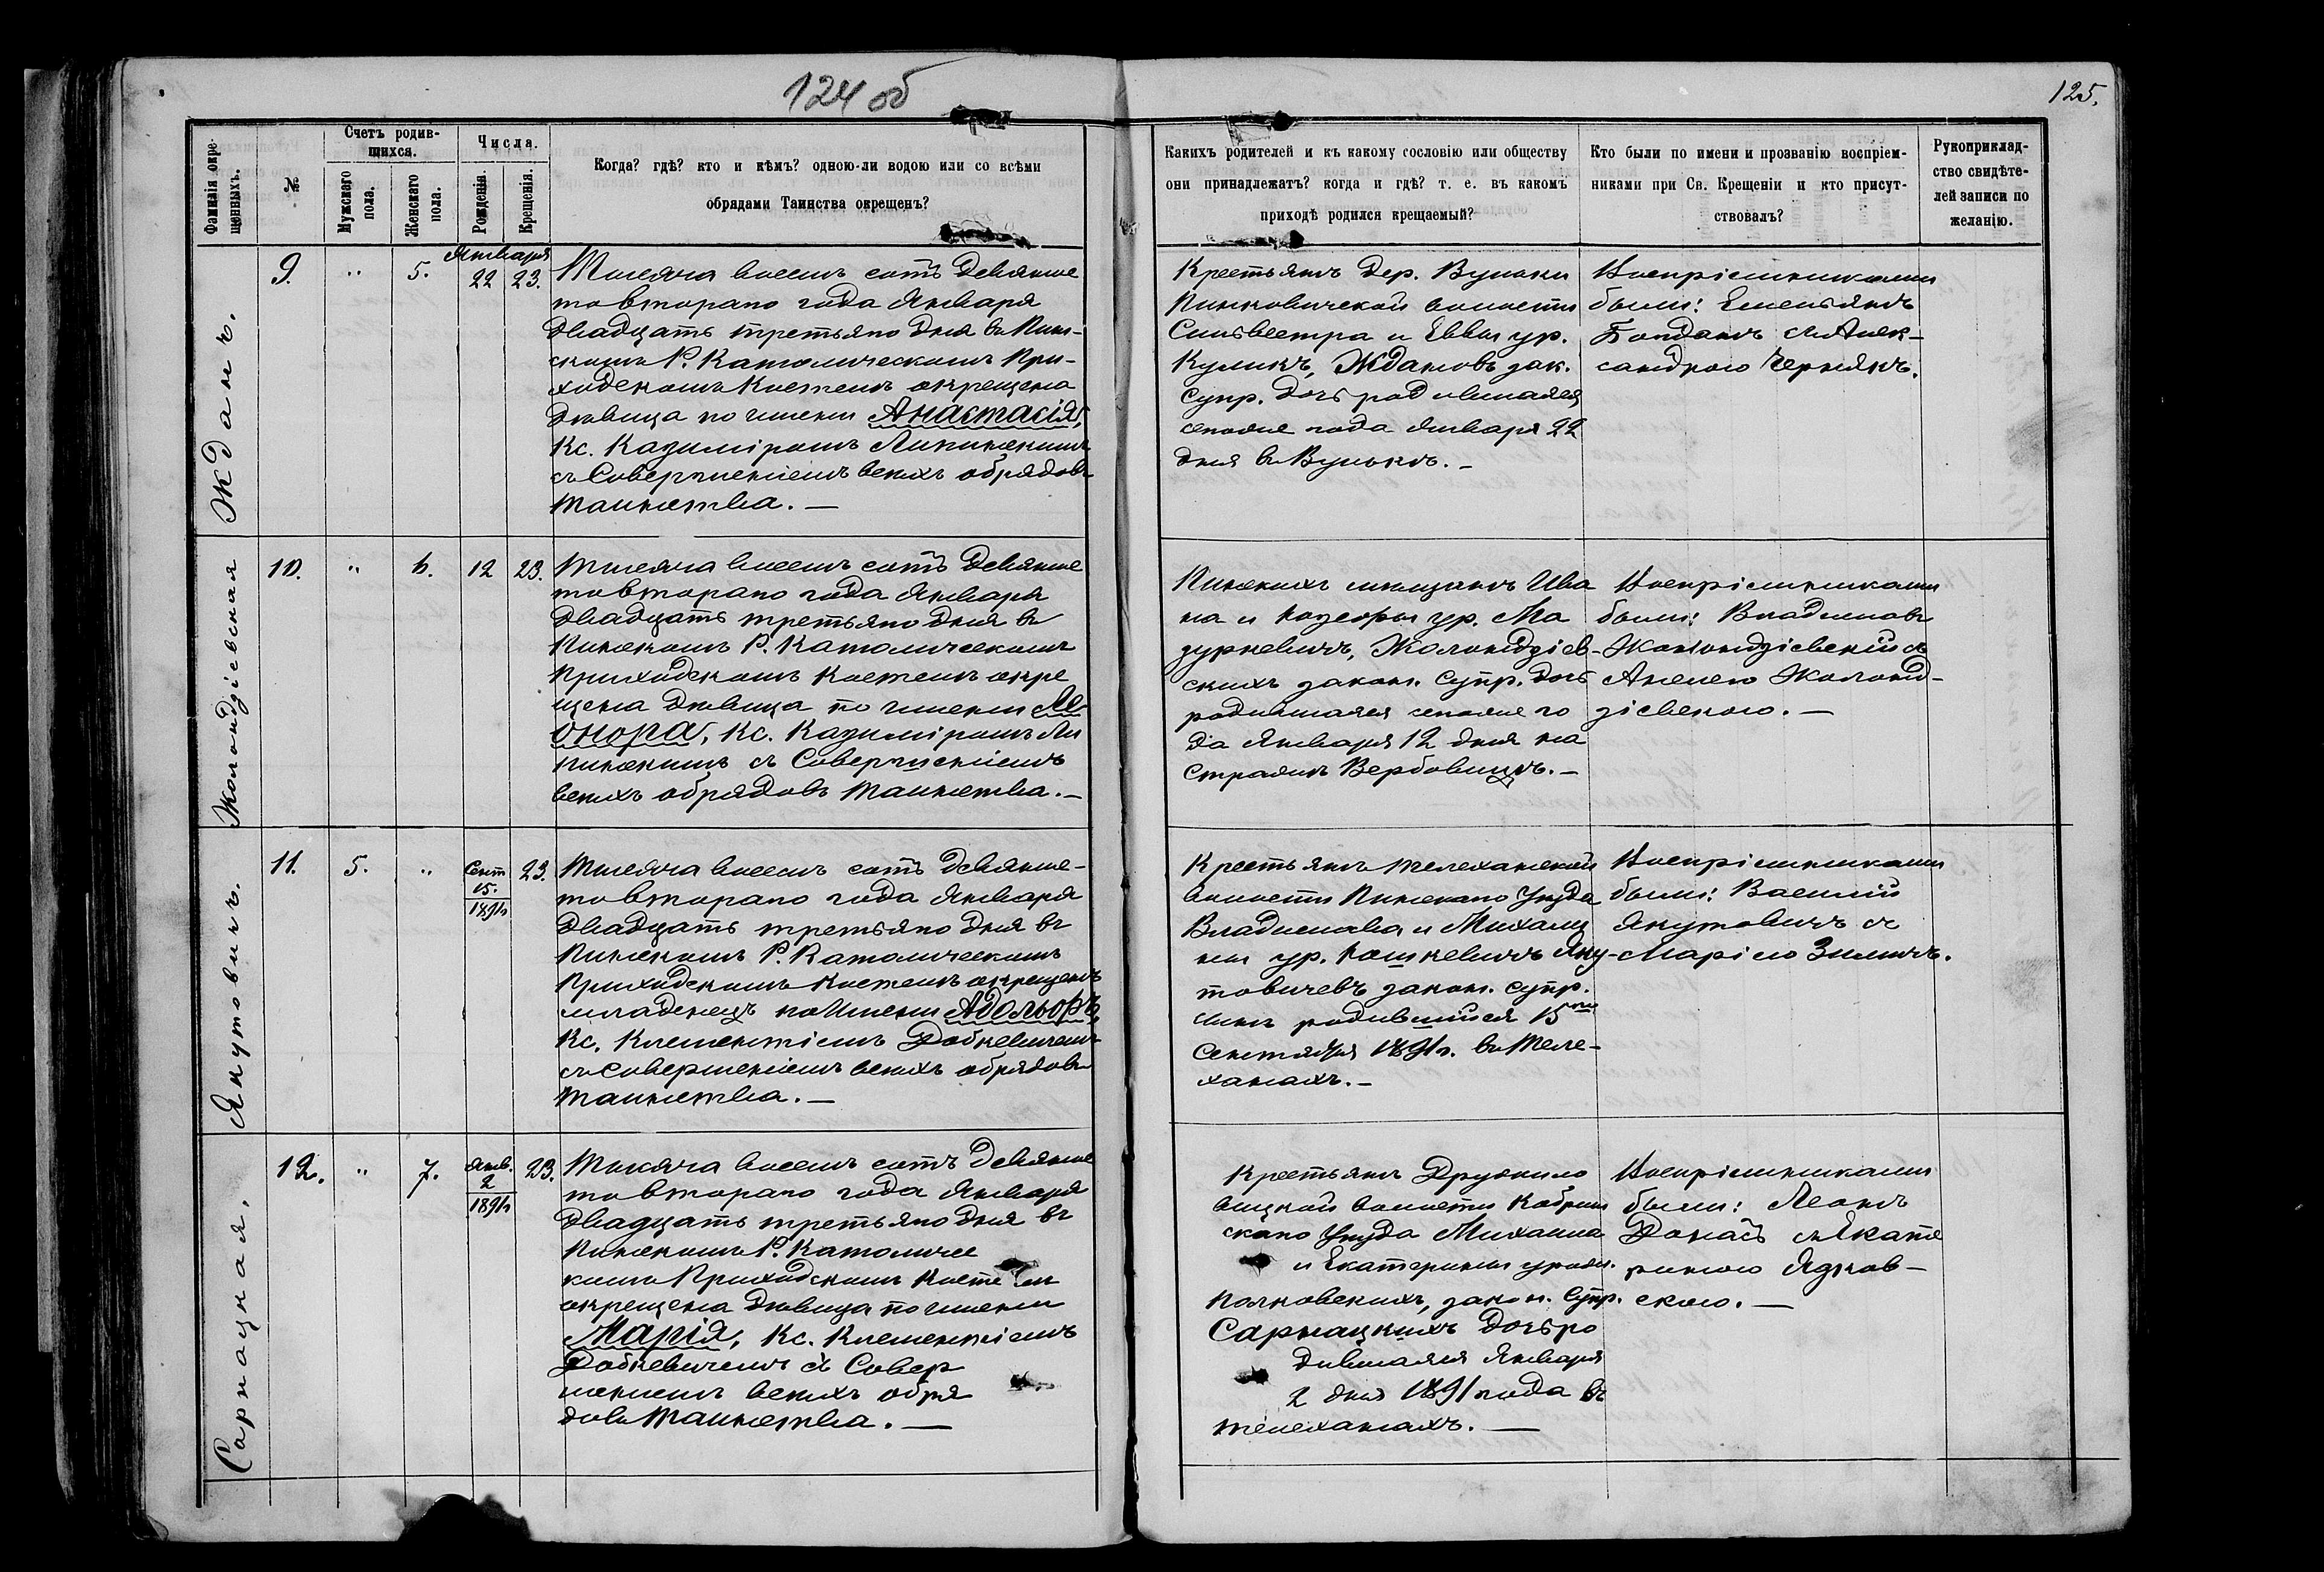 124 об
125.
Фамилія окре-
щенныхъ.
№
Счетъ родив-
шихся.
Мужскаго
пола.
Женскаго
пола.
Числа.
Рожденія.
Крещенія.
Когда? гдѣ? кто и кѣмъ? одною-ли водою или со всѣми
обрядами Таинства окрещенъ?
Какихъ родителей и къ какому сословію или обществу
они принадлежатъ? когда и гдѣ? т. е. въ какомъ
приходѣ родился крещаемый?
Кто были по имени и прозванію воспріем-
никами при Св. Крещеніи и кто присут-
ствовалъ?
Рукоприклад-
ство свидѣте-
лей записи по
желанію.
Жданъ.
9.
"
5.
Января
22
23.
Тысяча восемь сотъ девяносто
втораго года Января
двадцать третьяго дня въ Пин-
скомъ Р. Католическомъ При-
ходскомъ Костелѣ окрещена
дѣвица по имени Анастасія,
Кс. Казиміромъ Липинскимъ
съ Совершеніемъ всѣхъ обрядовъ
Таинства. —
Крестьянъ дер. Вульки
Пинковичской волости
Сильвестра и Еввы ур.
Куликъ, Ждановъ зак.
Супр. дочь родившаяся
сего года Января 22
дня въ Вулькѣ. —
Воспріемниками
были: Емельянъ
Богданъ съ Алек-
сандрою Чернякъ.
Жолондзіевская
10.
"
6.
12
23.
Тысяча восемь сотъ девяносто
втораго года Января
двадцать третьяго дня въ
Пинскомъ Р. Католическомъ
Приходскомъ Костелѣ окре
щена дѣвица по имени Ле
онора, Кс. Казиміромъ Ли
пинскимъ съ Совершеніемъ
всѣхъ обрядовъ Таинства. —
Пинскихъ мѣщанъ Ива
на и Юзефы ур. Ма
зуркевичъ, Жолондзіев-
скихъ закон. Супр. дочь
родившаяся сего го
да Января 12 дня на
Вербовицѣ. —
Воспріемниками
были: Владиславъ
Жолондзіевскій съ
Анелею Жолонд-
зіевскою. —
Якутовичъ.
11.
5.
"
Сент
15.
1891г
23.
Тысяча восемь сотъ девяносто-
втораго года Января
двадцать третьяго дня въ
Пинскомъ Р. Католическомъ
Приходскомъ Костелѣ окрещенъ
младенецъ по Имени Адольфъ,
Кс. Клементіемъ Добкевичемъ
съ Совершеніемъ всѣхъ обрядовъ
Таинства. —
Крестьянъ Телеханской
волости Пинскаго Уѣзда
Владислава и Михали
ны ур. Якутовичевъ закон. супр.
сынъ родившійся 15го
Сентября 1891г. въ Теле-
ханахъ. —
Воспріемниками
были: Василій
Якутовичъ съ
Маріею Зиличъ.
Сарнацкая.
12.
"
7.
Янв.
2
1891г
23.
Тысяча восемь сотъ девяносто
втораго года Января
двадцать третьяго дня въ
Пинскомъ Р. Католичес
комъ Приходскомъ Костелѣ
окрещена дѣвица по имени
Марія, Кс. Клементіемъ
Добкевичемъ съ Совер
шеніемъ всѣхъ обря
довъ Таинства. —
Крестьянъ Дружило
вицкой волости Кобрин
скаго Уѣзда Михаила
и Екатерины урожд.
Полковскихъ, закон. Супр.
Сарнацкихъ дочь ро
дившаяся Января
2 дня 1891 года въ
Телеханахъ. —
Воспріемниками
были: Леонъ
Донасъ съ Екате
риною Ядков-
скою. —